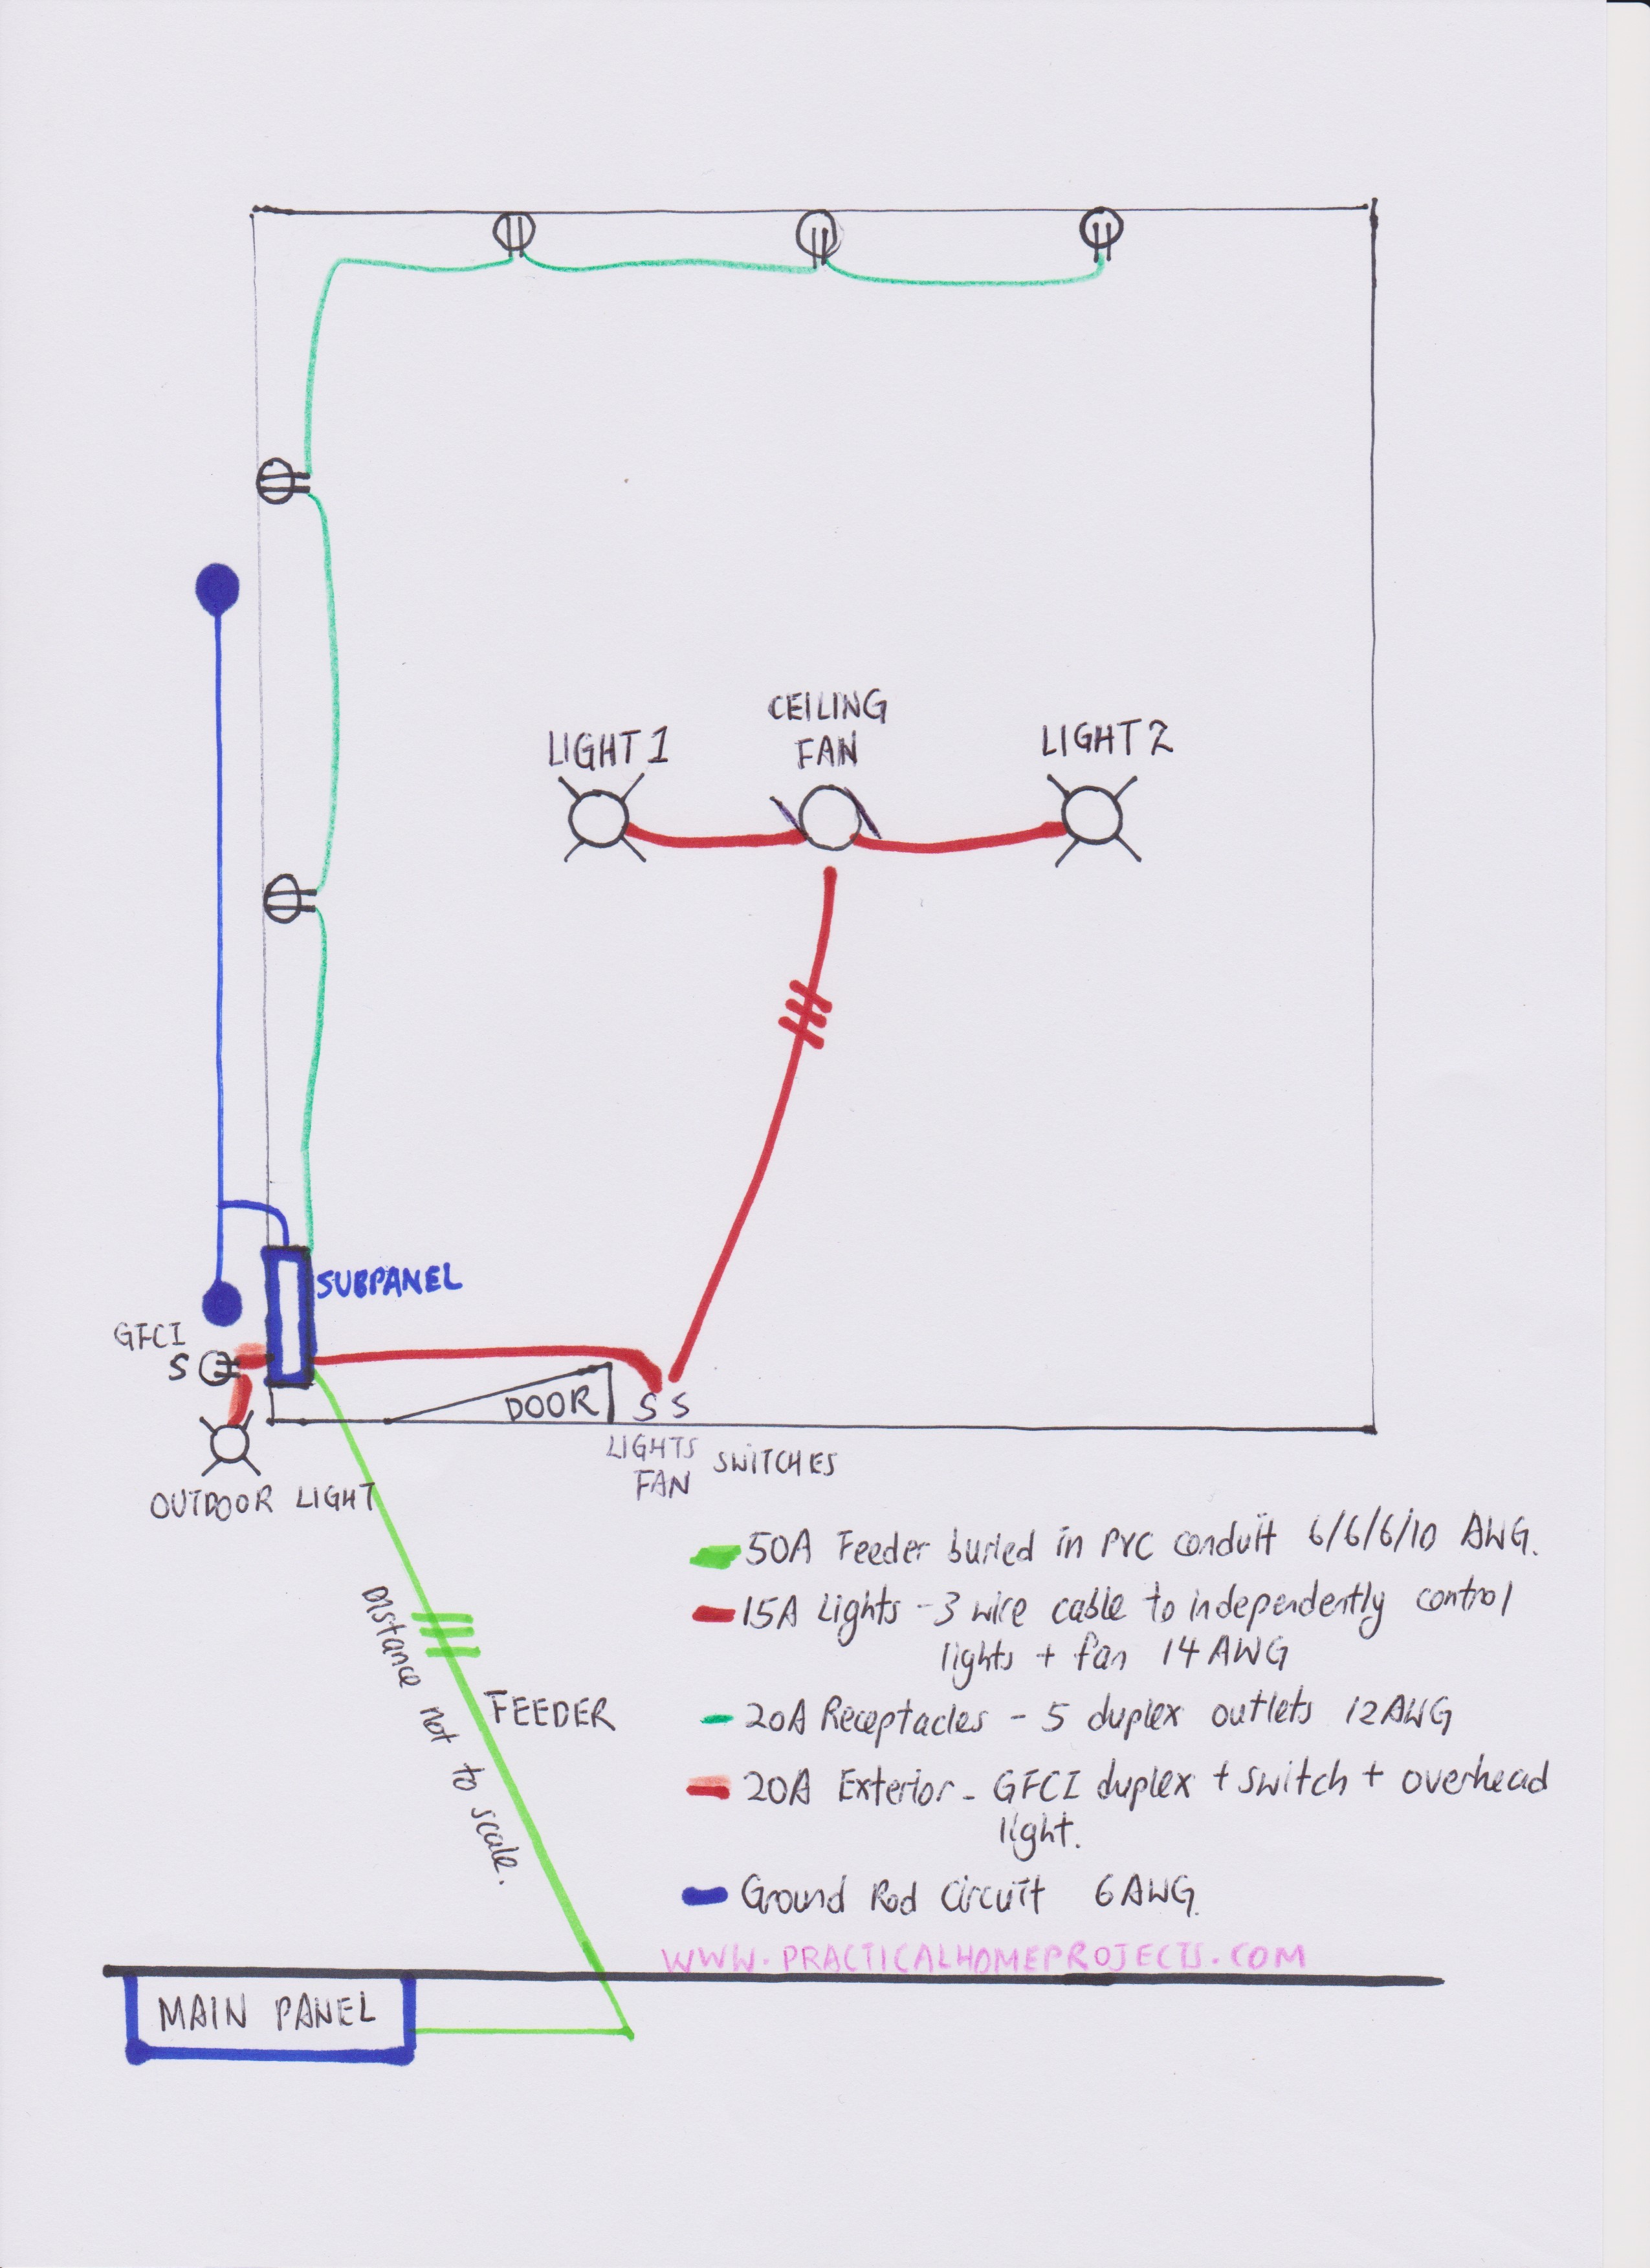 CEILING
FAN
LIGHT 1
LIGHT 2
SUBPANEL
GFCI
S
DOOR
S S
LIGHTS SWITCHES
FAN
OUTDOOR LIGHT
Distance not to scale.
FEEDER
50A Feeder buried in PVC conduit 6/6/6/10 AWG.
15A Lights - 3 wire cable to independently control
lights + fan 14 AWG
20A Receptacles - 5 duplex outlets 12AWG
20A Exterior - GFCI duplex + switch + overhead
light.
Ground Rod Circuit 6AWG.
WWW.PRACTICALHOMEPROJECTS.COM
MAIN PANEL